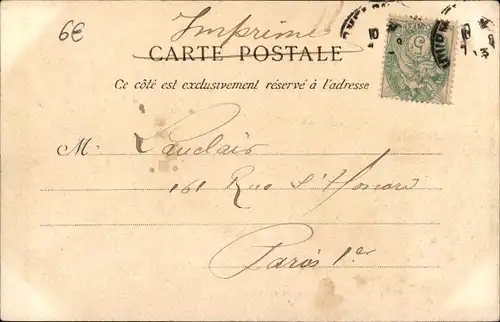 6€
Imprimé
CARTE POSTALE
Ce côté est exclusivement réservé à l'adresse
M. Lanclais
161 Rue St Honoré
Paris 1er